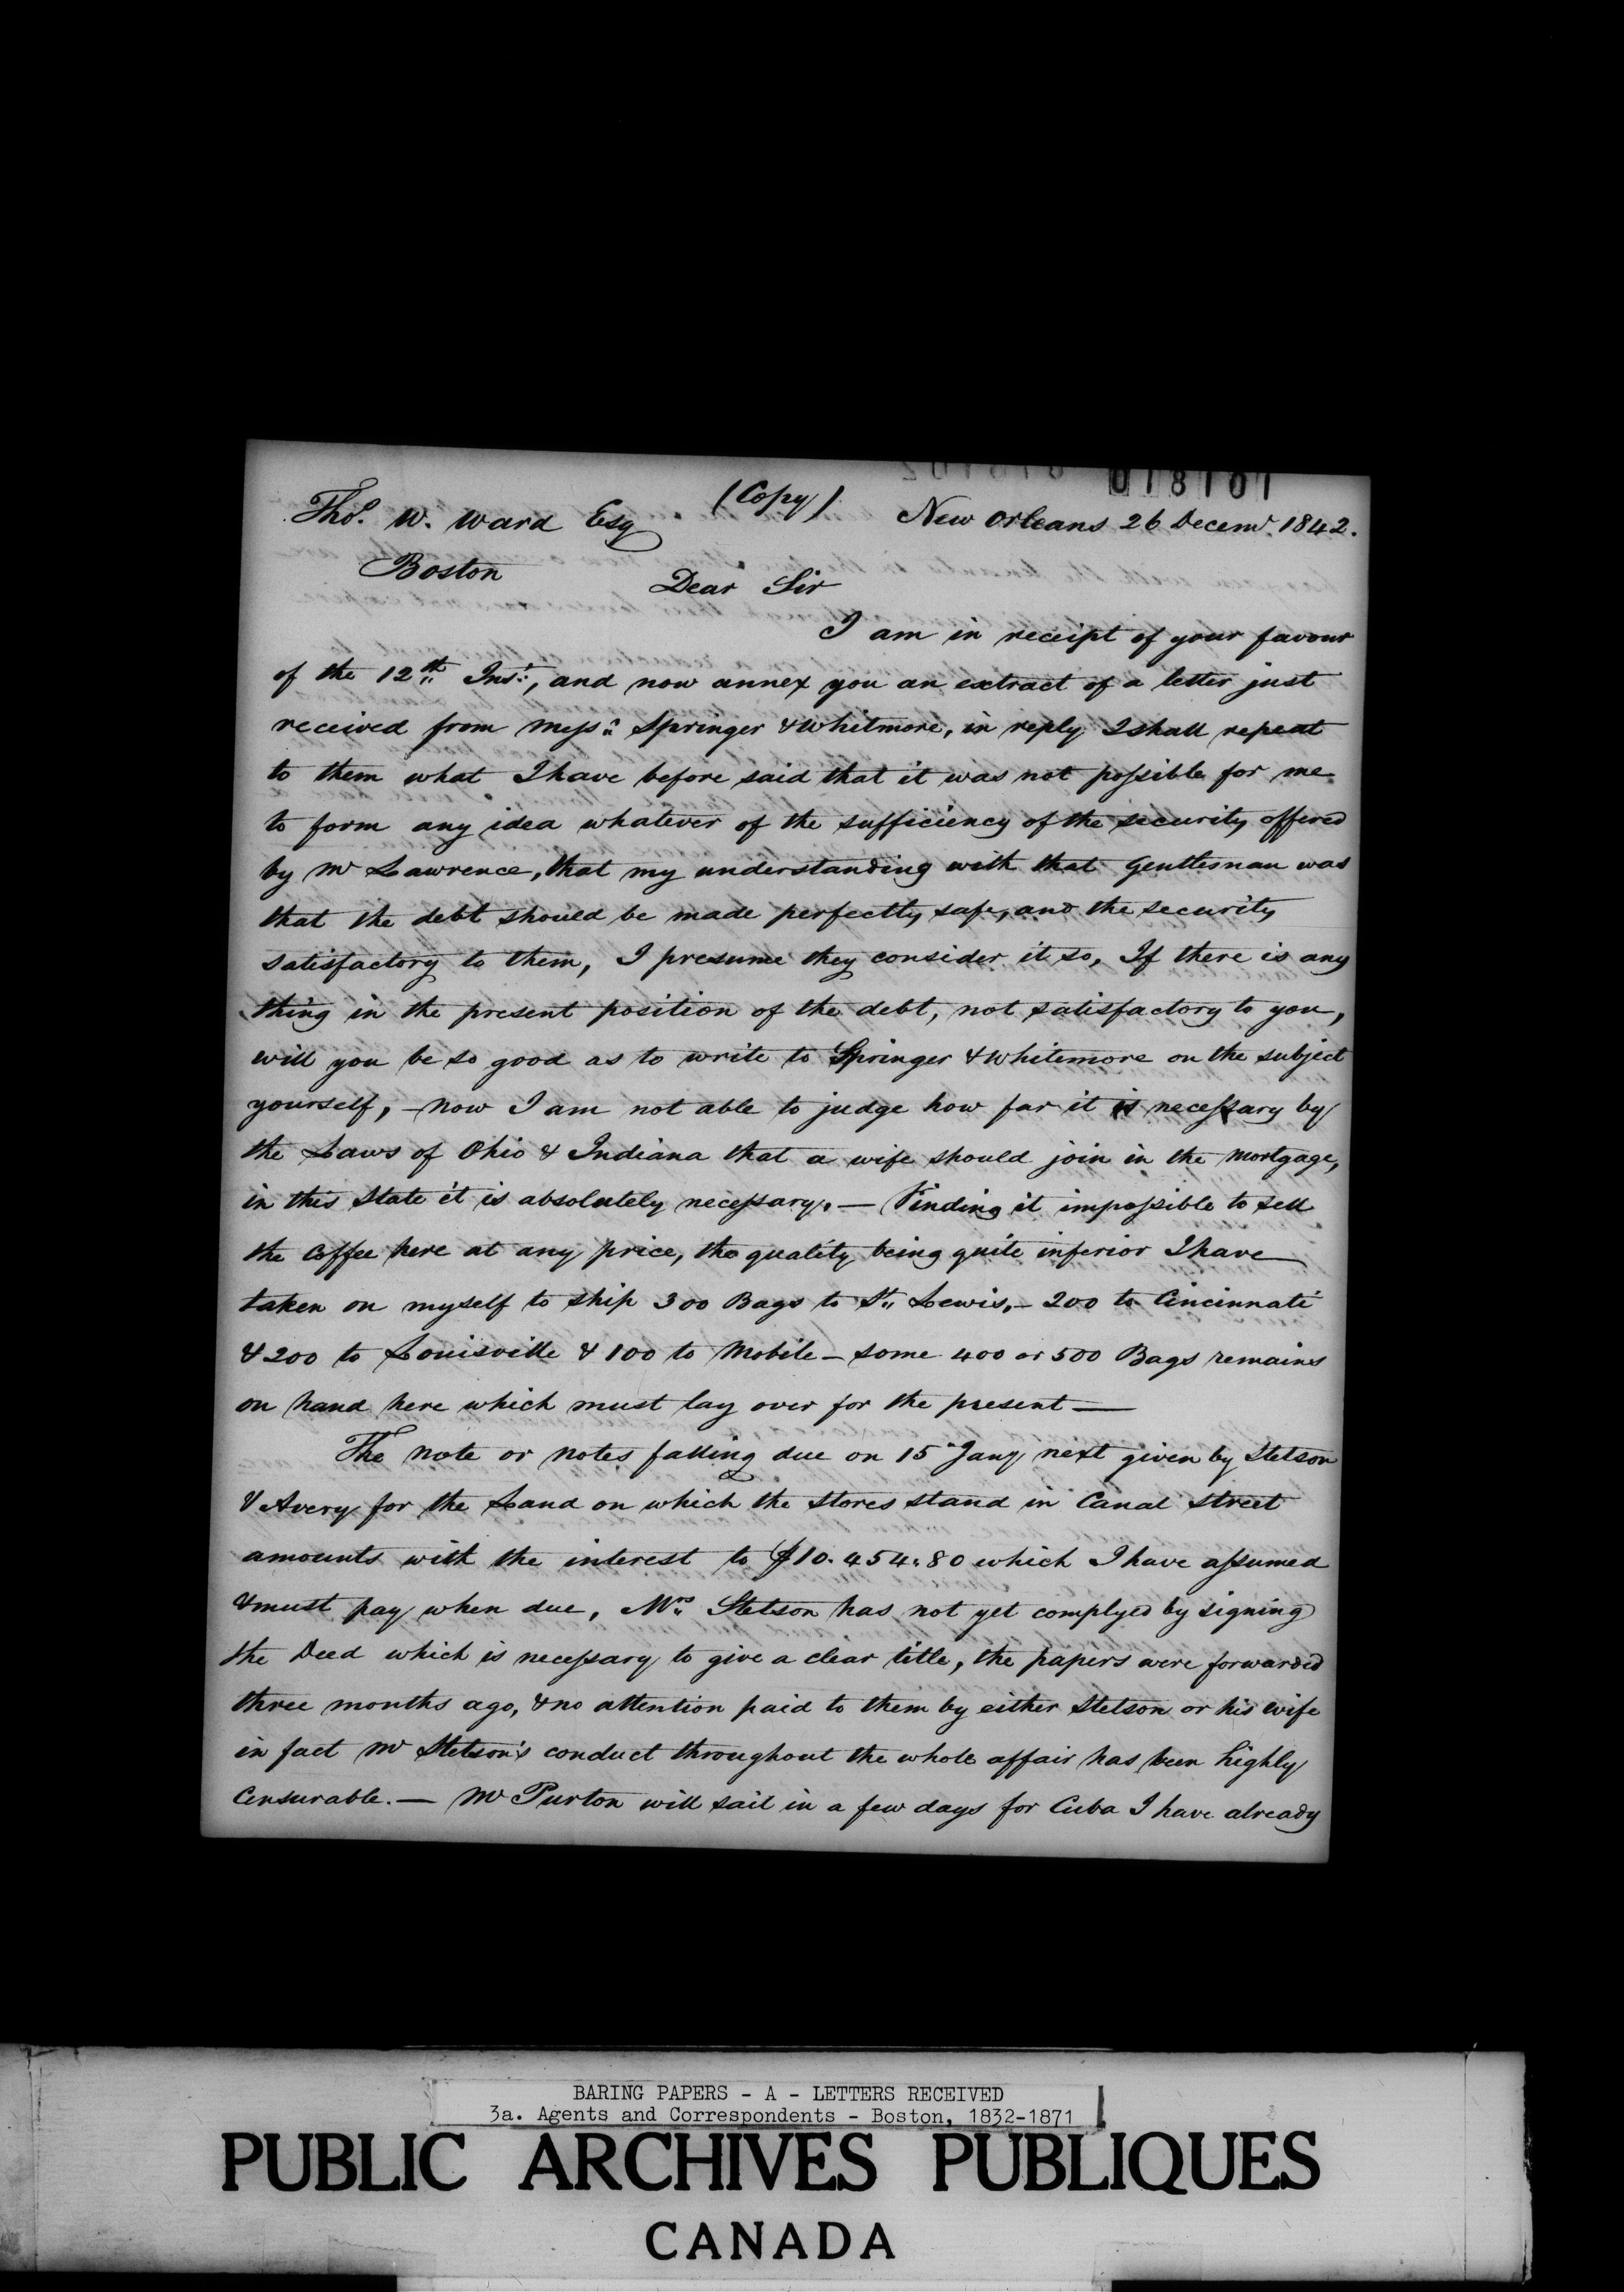 018101
(Copy)
Thos. W. Ward Esq
New Orleans 26 Decemr. 1842.
Boston
Dear Sir
I am in receipt of your favour
of the 12th Inst:, and now annex you an extract of a letter just
received from Messrs Springer & Whitmore, in reply I shall repeat
to them what I have before said that it was not possible for me
to form any idea whatever of the sufficiency of the security offered
by Mr Lawrence, that my understanding with that Gentlesman was
that the debt should be made perfectly safe, and the security
satisfactory to them, I presume they consider it so, If there is any
thing in the present position of the debt, not satisfactory to you,
will you be so good as to write to Springer & Whitemore on the subject
yourself, - now I am not able to judge how far it is necessary by
the Laws of Ohio & Indiana that a wife should join in the Mortgage,
in this State it is absolutely necessary. — Finding it impossible to sell
the Coffee here at any price, the quality being quite inferior I have
taken on myself to ship 300 Bags to St. Lewis, - 200 to Cincinnati
& 200 to Louisville & 100 to Mobile - some 400 or 500 Bags remains
on hand here which must lay over for the present —
The note or notes falling due on 15 Jany next given by Stetson
& Avery for the Land on which the Stores stand in Canal Street
amounts with the interest to $10.454.80 which I have assumed
& must pay when due, Mrs Stetson has not yet complyed by signing
the Deed which is necessary to give a clear title, the papers were forwarded
three months ago, & no attention paid to them by either Stetson or his wife
in fact Mr Stetson's conduct throughout the whole affair has been highly
Censurable. — Mr Purton will sail in a few days for Cuba I have already
BARING PAPERS - A - LETTERS RECEIVED
3a. Agents and Correspondents - Boston, 1832-1871
PUBLIC ARCHIVES PUBLIQUES
CANADA